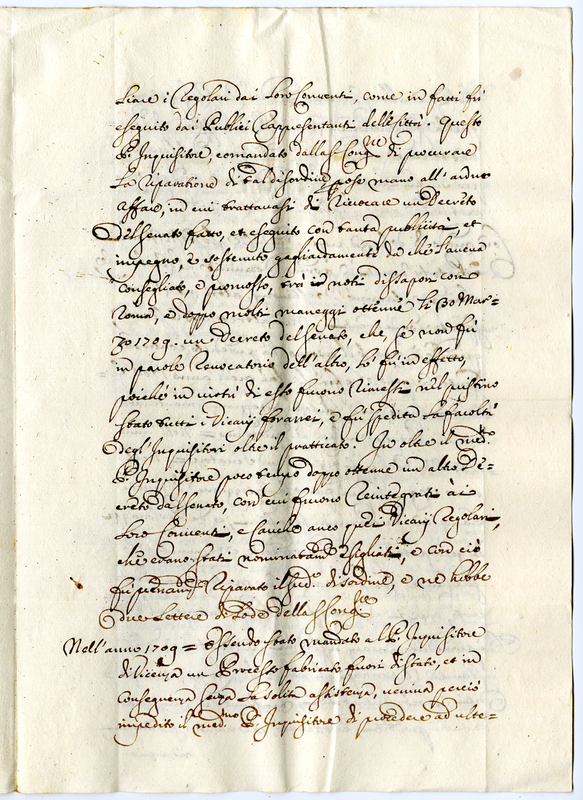 liare i Regolari dai loro Conventi, come in fatti fù
eseguito dai Publici Rappresentanti delle Città. Questo
P. Inquisitore, comandato dalla S. Cong.ne di procurare
la riparatione di tal disordine pose mano all'arduo
affare, in cui trattavasi di rivocare un Decreto
del Senato fatto, et eseguito con tanta publicità, et
impegno, e sostenuto gagliardamente da chi l'aveva
consegliato, e promosso, trà i noti dissapori con
Roma, e doppo molti maneggi ottenne li 30 Mar=
zo 1709. un Decreto del Senato, che, se non fù
in parole revocatorio dell'altro, lo fù in effetto,
poiche in virtù di esso furono rimessi nel pristino
stato tutti i Vicarij foranei, e fù
degl'Inquisitori oltre il pratticato. In oltre il med.
P. Inquisitore poco tempo doppo ottenne un altro De=
creto dal Senato, con cui furono reintegrati ai
loro Conventi, e Cariche anco quei Vicarij Regolari,
che erano stati nominatam.te esigliati, e con ciò
fù pienam.te riparato il sud.o disordine, e ne hebbe
due Lettere di Lode della S. Cong.ne
Nell'anno 1709 = essendo stato mandato al P. Inquisitore
di licenza un Processo fabricato fuori di stato, et in
conseguenza senza la solita assistenza, veniva perciò
impedito il med.mo P. Inquisitore di procedere ad ulte=